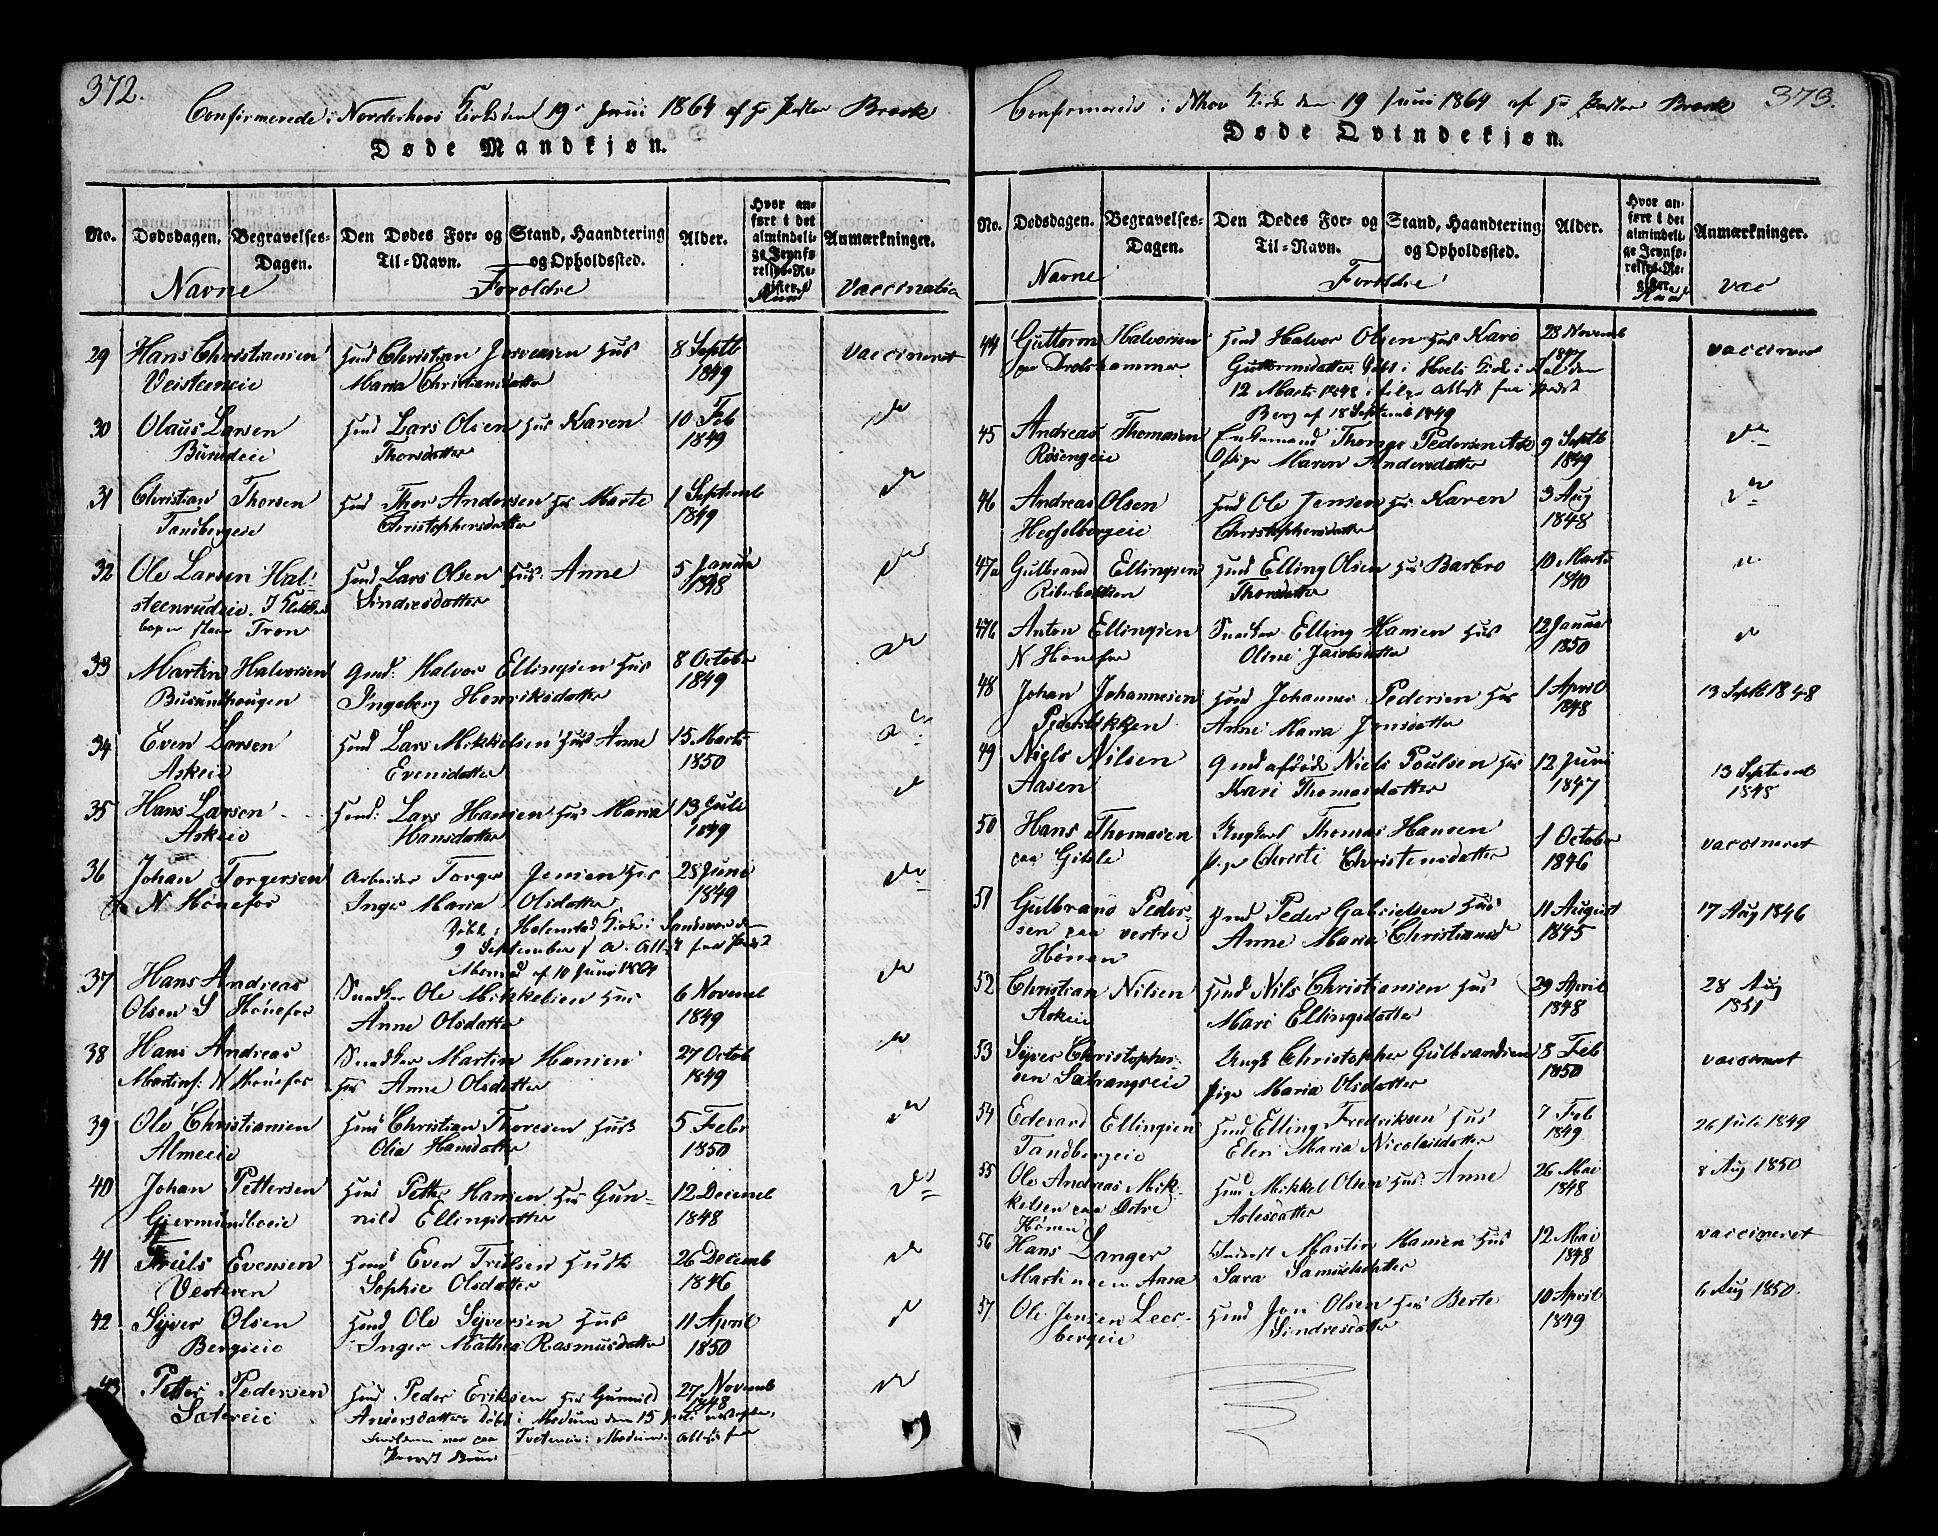 372.
Confirmerede i Norderhovs Kirke den 19de Juni 1864 af Hr Pastor Brock
Døde Mandkjøn.
No. Dødsdagen. Begravelses-Dagen. Den Dødes For- og Til-Navn. Stand, Haandtering og Opholdssted. Alder. Hvor anført i det almindelige Jevnførelses-Register. Anmærkninger.
Navne Foroldre Vaccinatia
29 Hans Christiansen Christian Jorvensen Hus 8 Septb vaccineret
Veisteneie Maria Christiansdatter 1849
30 Olaus Larsen Lars Olsen Hus Karen 10 Feb do
Bureeie Thorsdatter 1849
31 Christian Thorsen Thor Andersen Hus Marte 1 Septemb do
Tandbergeie Christophersdatter 1849
32 Ole Larsen Hal- Lars Olsen Hus Anne 5 Janua do
steenrudeie. Sindresdatter 1848
Tron
33 Martin Halvorsen Halvor Ellingsen Hus 8 Octobr do
Busundhougen Ingeborg Henriksdatter 1849
34 Even Larsen Lars Mikkelsen Hus Anne 15 Marts do
Askeie Evensdatter 1850
35 Hans Larsen Lars Hansen Hus Maria 13 Juli do
Askeie Hansdatter 1849
36 Johan Torgersen Arbeider Torger Jensen Hus 28 Juni do
N Hønefos Inger Maria Olsdatter 1849
9 September
af 10 Juni 1864
37 Hans Andreas Snedker Ole Mikkelsen Hus 6 Novemb do
Olsen S Hønefos Anne Olsdatter 1849
38 Hans Andreas Snedker Martin Hansen 27 Octob do
Martins: N Hønefos Hus Anne Olsdatter 1849
39 Ole Christiansen Christian Thoresen Hus 5 Febr do
Almeie Olia Hansdatter 1850
40 Johan Pettersen Petter Hansen Hus Gun- 12 Decemb do
Gjermundboeie nild Ellingsdatter 1848
41 Truls Evensen Even Trulsen Hus 26 Decemb do
Vesteren Sophie Olsdatter 1846
42 Syver Olsen Ole Syversen Hus 11 April do
Bergseie Inger Mathea Rasmusdatter 1850
43 Petter Pedersen Peder Eriksen Hus Gunnild 27 Novemb do
Andersdatter. Døbt i Modum den 15 1848
373.
Confirmerede i Nhov Kirke den 19 Juni 1864 af Hr Pastor Brock
Døde Qvindekjøn.
No. Dødsdagen. Begravelses-Dagen. Den Dødes For- og Til-Navn. Stand, Haandtering og Opholdssted. Alder. Hvor anført i det almindelige Jevnførelses-Register. Anmærkninger.
Navne Foroldre vac
44 Guttorm Halvorsen Halvor Olsen Hus Karo 28 Novemb vaccineret
Drolshammer Guttormsdatter. Døbt i Hols Kirke i Hal den 1847
12 Marts 1848 ifølge Attest fra Præst
Berg af 18 Septemb 1849
45 Andreas Thomasen Enkemand Thomas Pedersen Ask 9 Septb do
Røsengeie Pige Maren Andersdatter 1849
46 Andreas Olsen Ole Jensen Hus Karen 3 Aug do
Hesselbergeie Christophersdatter 1848
47a Gulbrand Ellingsen Elling Olsen Hus Barbro 10 Marts do
Thorsdatter 1840
47b Anton Ellingsen Snedker Elling Hansen Hus 12 Januar do
N Hønefos Oline Jacobsdatter 1850
48 Johan Johannesen Johannes Pedersen Hus 1 April 13 Septb 1848
Anne Maria Jonsdatter 1848
49 Niels Nilsen Gmd afdøde Niels Poulsen Hus 12 Juni 13 Septemb
Aasen Kari Thomasdatter 1847 1848
50 Hans Thomasen Ungkarl Thomas Hansen 1 October vaccineret
paa Gihle Pige Christi Christensdatter 1846
51 Gulbrand Peder- Peder Gabrielsen Hus 11 August 17 Aug 1846
sen paa vestre Anne Maria Christiansd 1845
Hønen
52 Christian Nilsen Nils Christiansen Hus 29 April 28 Aug
Askeie Mari Ellingsdatter 1848 1851
53 Syver Christopher- Ungk Christopher Gulbrandsen 8 Feb vaccineret
sen Satrangseie Pige Maria Olsdatter 1850
54 Edevard Ellingsen Elling Fredriksen Hus 7 Feb 26 Juli 1849
Tandbergeie Elen Maria Nicolaisdatter 1849
55 Ole Andreas Mik- Mikkel Olsen Hus: Anne 26 Mai 8 Aug 1850
kelsen paa Østre Aslesdatter 1848
Hønen
56 Hans Langer Martin Hansen Hus 12 Mai vaccineret
Martinsen Aasa Sara Samuelsdatter 1848
57 Ole Jensen Leer- Jon Olsen Hus Berte 10 April 6 Aug 1850.
bergeie Sindresdatter 1849